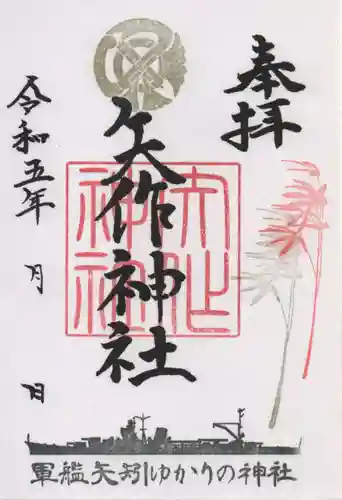 奉拝
矢作神社
令和五年 月 日
矢作神社
軍艦矢矧ゆかりの神社